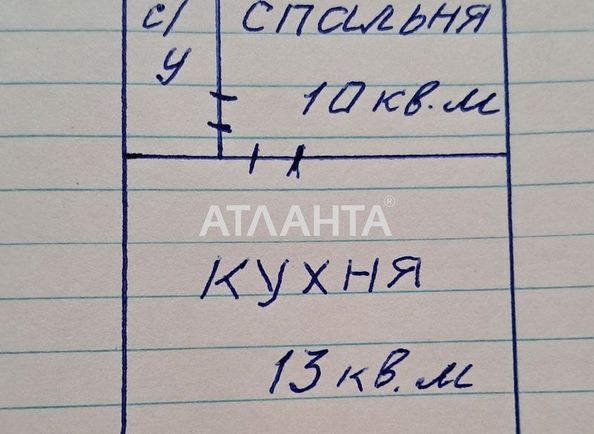 с/у
спальня
10 кв.м
АТЛАНТА®
кухня
13 кв.м